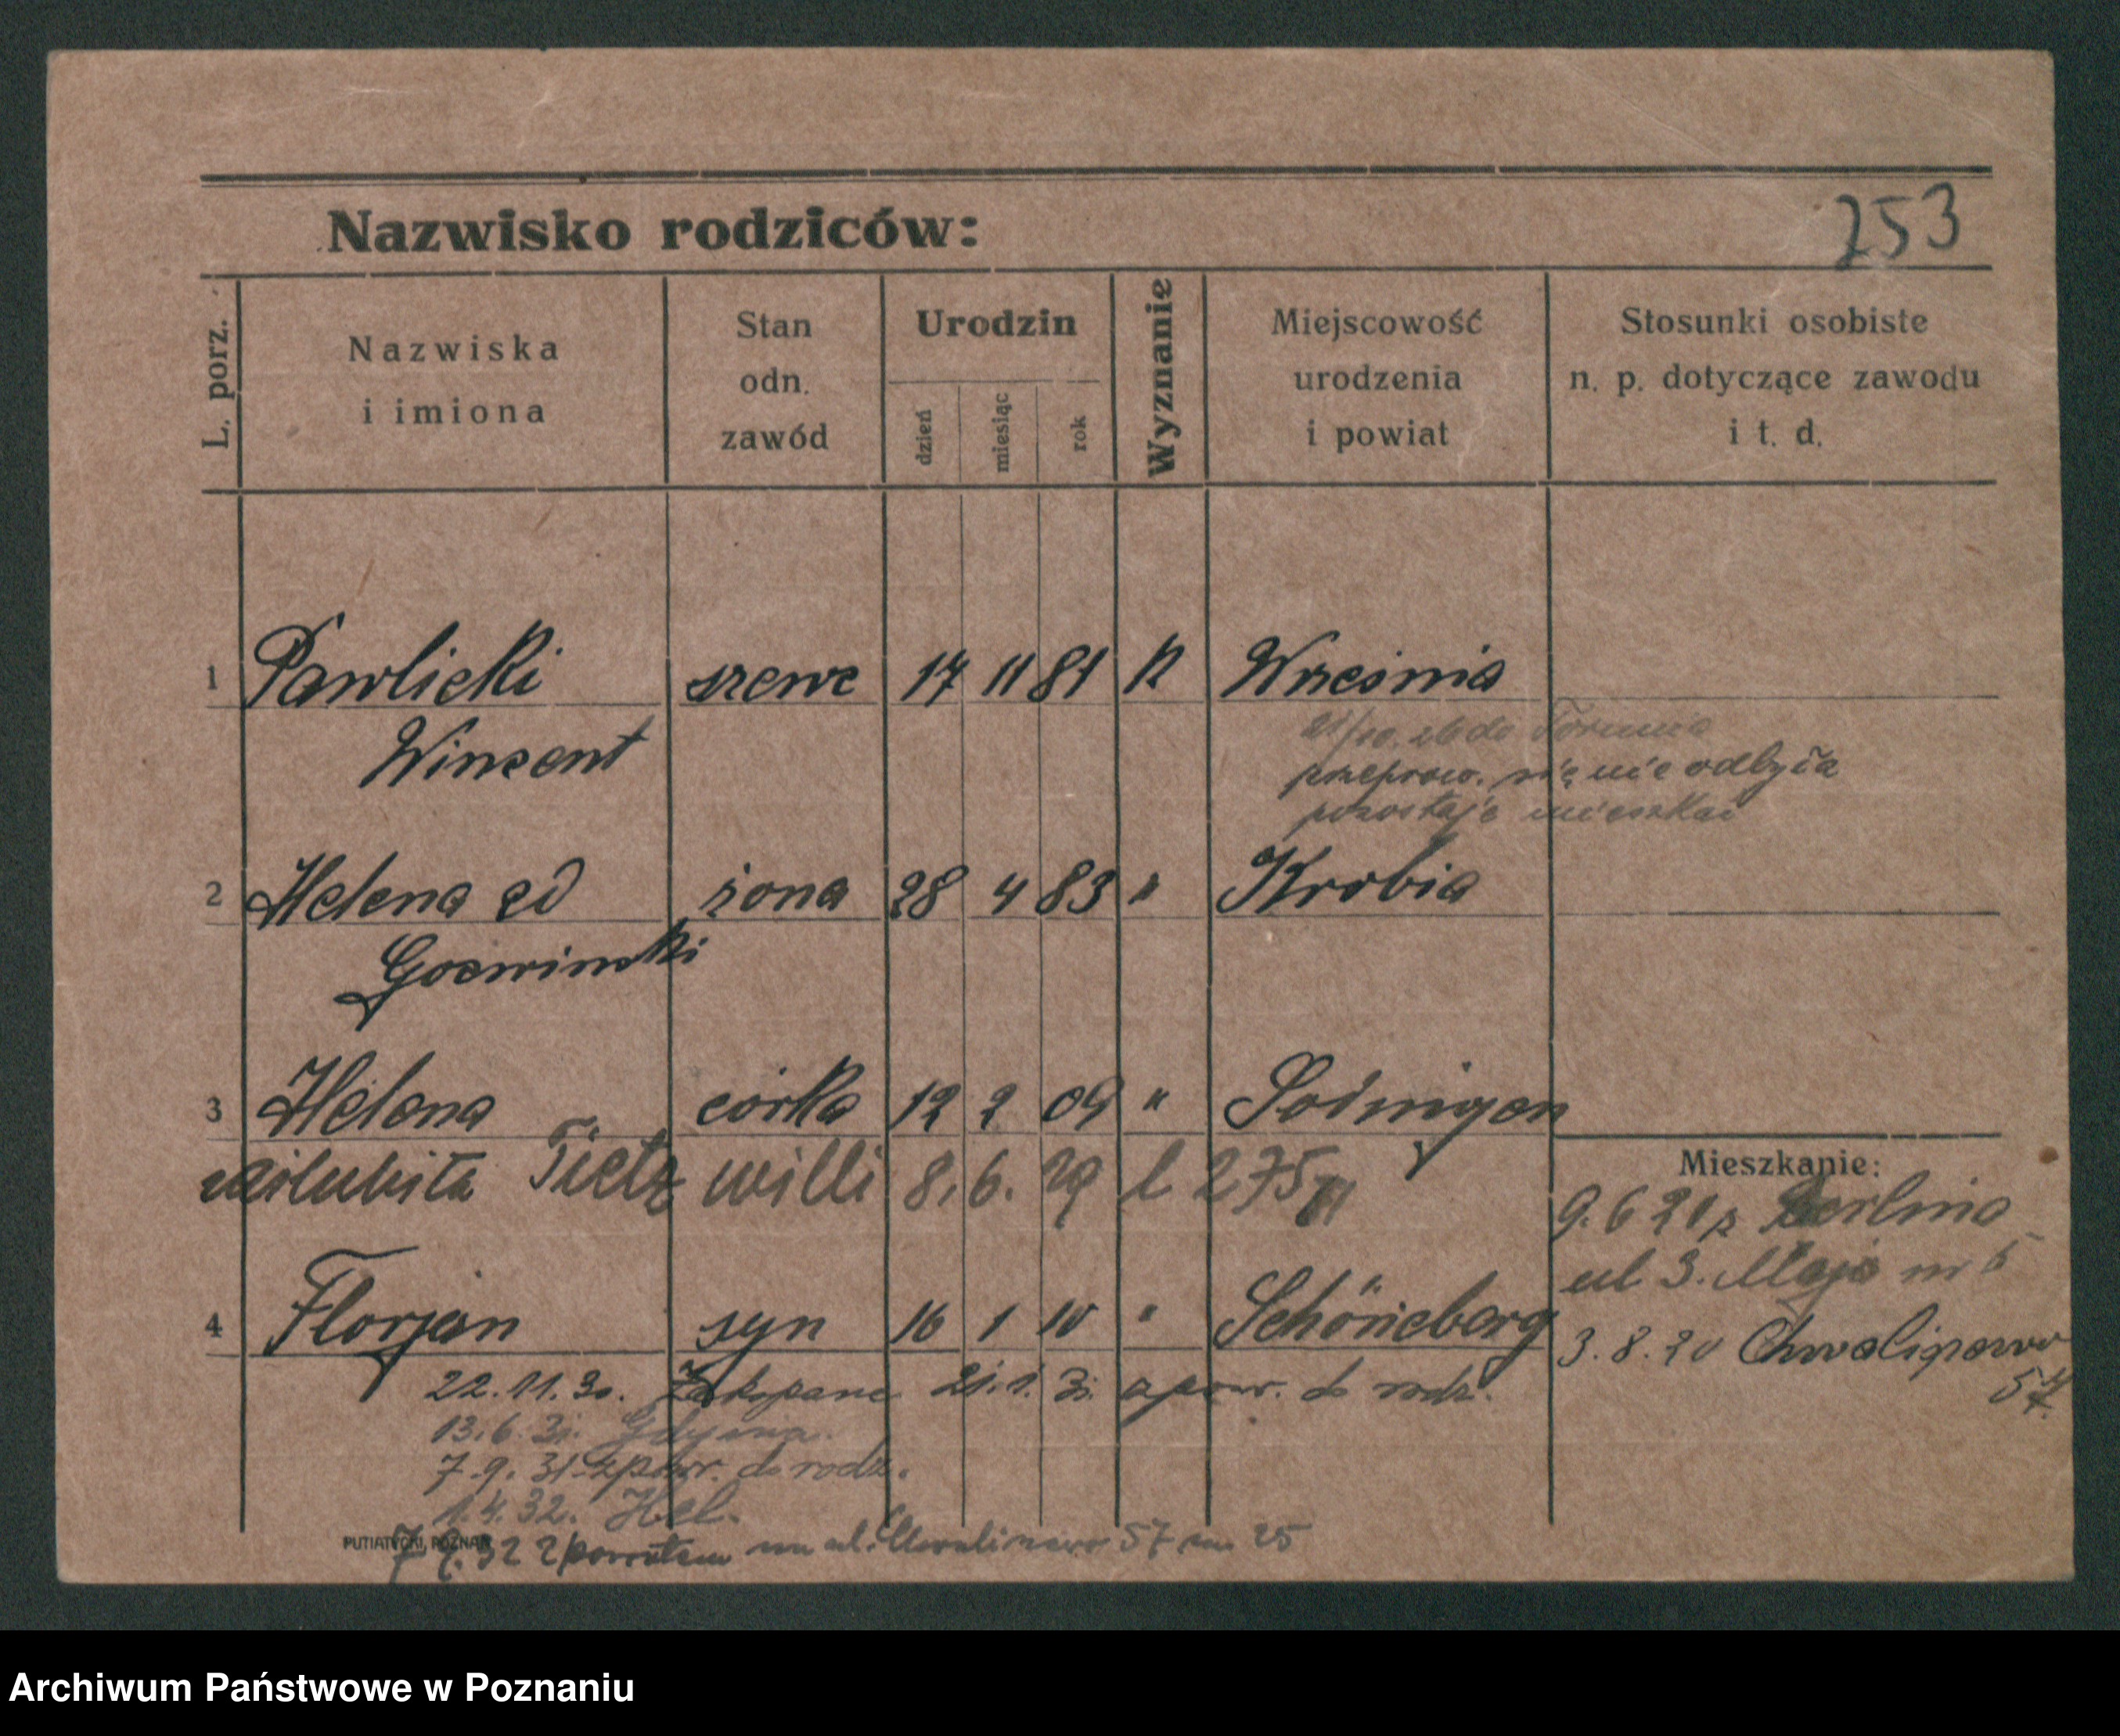 Nazwisko rodziców:
253
L. porz.
Nazwiska
i imiona
Stan
odn.
zawód
Urodzin
dzień
miesiąc
rok
Wyznanie
Miejscowość
urodzenia
i powiat
Stosunki osobiste
n. p. dotyczące zawodu
i t. d.
1 Pawlicki szewc 17 11 81 k Września
Winzent
21/10. 26 do Torunia
przeprow. się nie odbyła
pozostaje mieszkać
2 Helena żona 28 4 83 " Krobia
3 Helena córka 12 2 09 " Sodingen
Tietz Willi 8. 6. 29 l 275
Mieszkanie:
9. 6 21 z Berlina
ul 3. Maja nr 5
4 Florjan syn 16 1 10 " Schöneberg
3. 8. 20 Chwaliszewo
57
22. 11. 30. Zakopane 21. 1. 31. zpowr. do rodz.
13. 6. 31. Gdynia.
7. 9. 31. zpowr. do rodz.
1. 4. 32. Hel.
PUTIATYCKI, POZNAŃ
32 zpowrotem na ul. Chwaliszewo 57 m 25
Archiwum Państwowe w Poznaniu